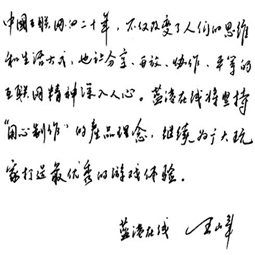 中国互联网的二十年，不仅改变了人们的思维
和生活方式，也让分享、开放、协作、平等的
互联网精神深入人心。蓝港在线将坚持
“用心制作”的产品理念，继续为广大玩
家打造最优秀的游戏体验。
蓝港在线 王峰